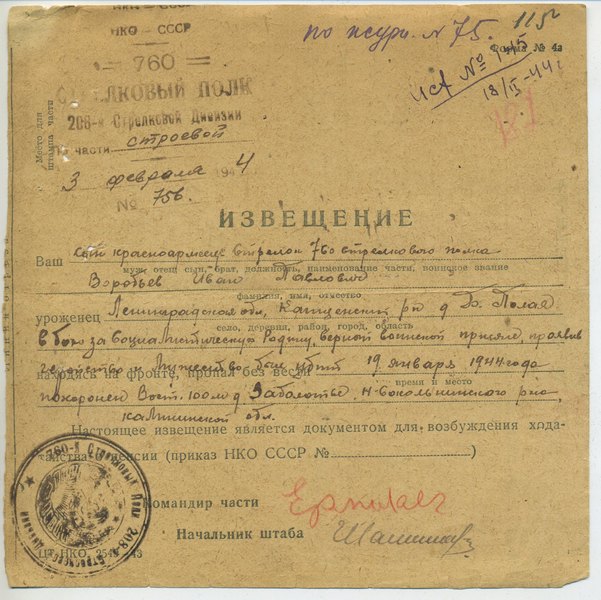 НКО — СССР
НКО — СССР
по журн. № 75. 115
Форма № 4а
= 760 =
СТРЕЛКОВЫЙ ПОЛК
208-й Стрелковой Дивизии
По части строевой
3 февраля 1944
№ 75б.
Место для
штампа части
исх № 115
18/II-44г
ИЗВЕЩЕНИЕ
Ваш сын красноармеец стрелок 760 стрелкового полка
муж, отец, сын, брат, должность, наименование части, воинское звание
Воробьев Иван Павлович
фамилия, имя, отчество
уроженец Ленинградская обл,
село, деревня, район, город, область
в бою за Социалистическую Родину, верный воинской присяге, проявив
геройство и мужество был убит 19 января 1944 года
находясь на фронте, пропал без вести
время и место
похоронен Вост. 100 м д Заболотье Н-Сокольнического р-на,
Калининской обл.
Настоящее извещение является документом для возбуждения хода-
тайства о пенсии (приказ НКО СССР №
)
Командир части
Начальник штаба
760-й Стрелковый Полк 208-й Стрелковой Дивизии
ЦТ НКО 254 43